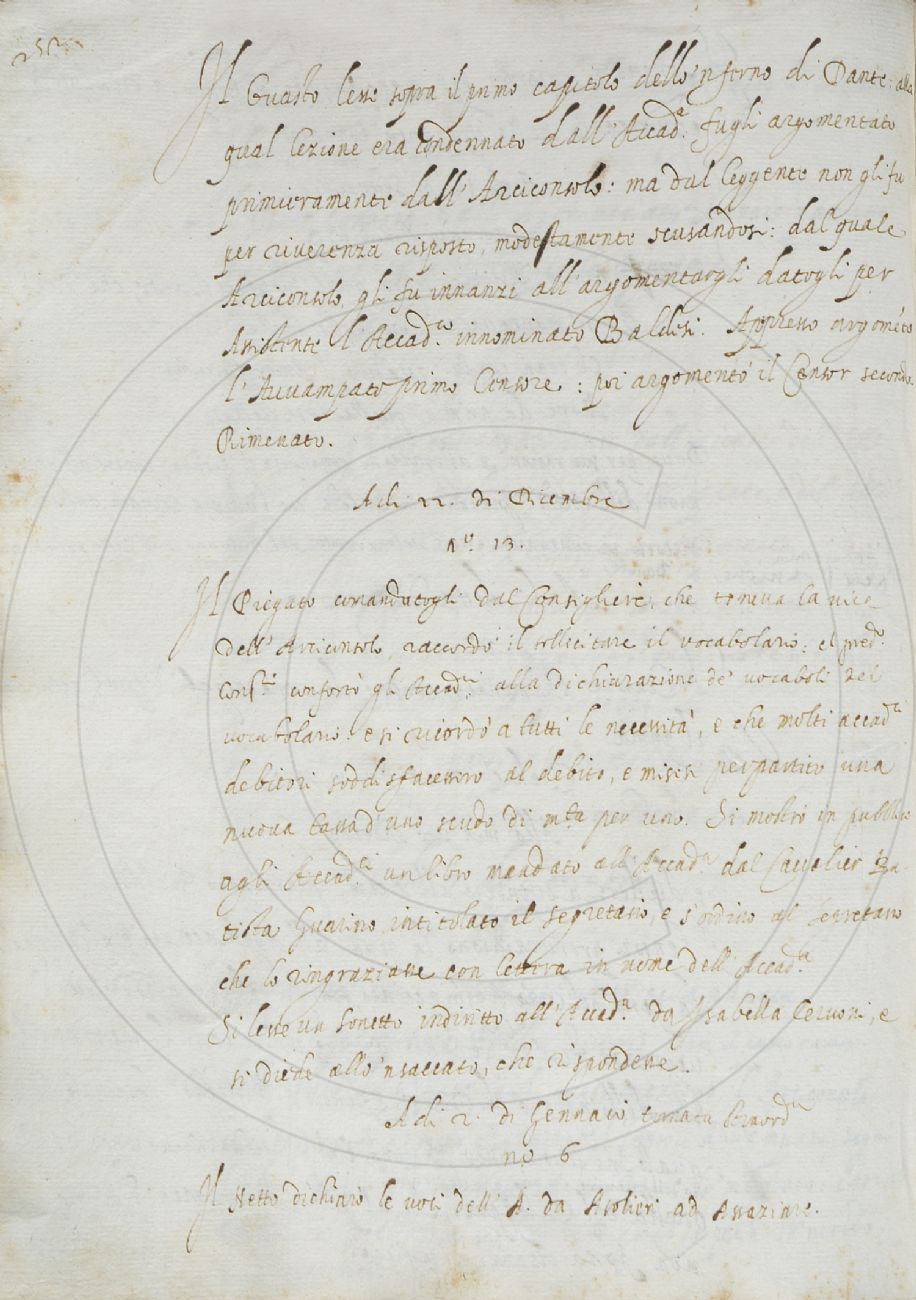 252
Il Guasto lesse sopra il primo capitolo dello 'nferno di Dante: alla
qual lezione era condennato dall' Accad.ª fugli argomentato
primieramente dall' Arciconsolo: ma dal leggente non gli fu
per riverenza risposto, modestamente scusandosi: dal quale
Arciconsolo gli fu innanzi all' argomentargli datogli per
Assistente l' Accad.co innominato Baldesi. Appresso argomētò
l' Avvampato primo Censore: poi argomentò il Censor secondo
Rimenato.
A di 22. di Dicembre
N.º 13.
Il Piegato comandatogli dal Consigliere, che teneva la vice
dell' Arciconsolo, raccordò il sollecitare il vocabolario: el pred.º
Cons.re confortò gli Accad.ci alla dichiarazione de' vocaboli del
vocabolario. e si ricordò a tutti le necessità, e che molti accad.ci
debitori soddisfacessero al debito, e misesi per partito una
nuova tassa d' uno scudo di m.ta per uno. Si mostrò in pubblico
agli Accad.ci un libro mandato all' Accad.ª dal Cavalier Ba-
tista Guarino, intitolato il segretario, e s' ordinò al Segretario
che lo ringraziasse con lettera in nome dell' Accad.ª
Si lesse un sonetto indiritto all' Accad.ª da Isabella Cervoni, e
si diede allo 'nsaccato, che rispondesse.
A di 2. di Gennaio tornata straord.ª
n.º 6
Il Netto dichiarò le voci dell' A. da Asolieri ad Assazione.